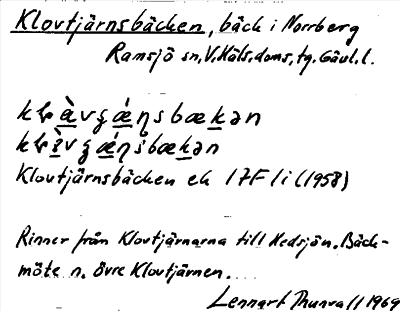 Klovtjärnsbäcken, bäck i Norrberg
Ramsjö sn, V. Häls. doms. tg. Gävl. l.
Klovtjärnsbäcken ek 17F 1i (1958)
Rinner från Klovtjärnarna till Hedsjön. Bäck-
möte n. Övre Klovtjärnen.
Lennart Thunvall 1969